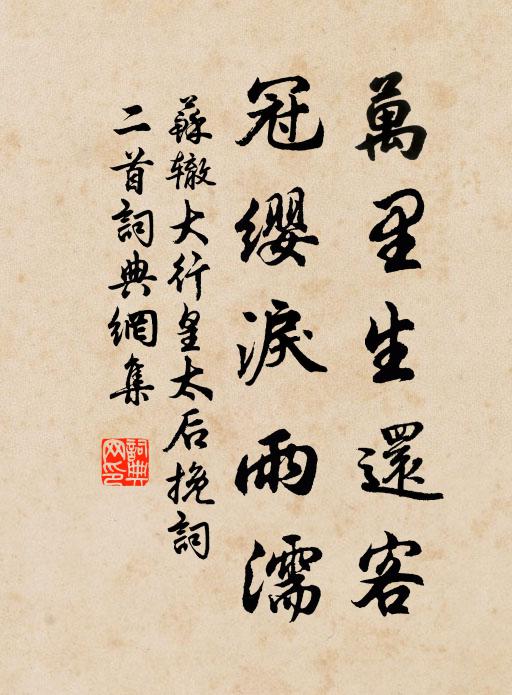 萬里生還客
冠缨淚雨濡
蘇辙大行皇太后挽詞
二首詞典網集
詞典网印